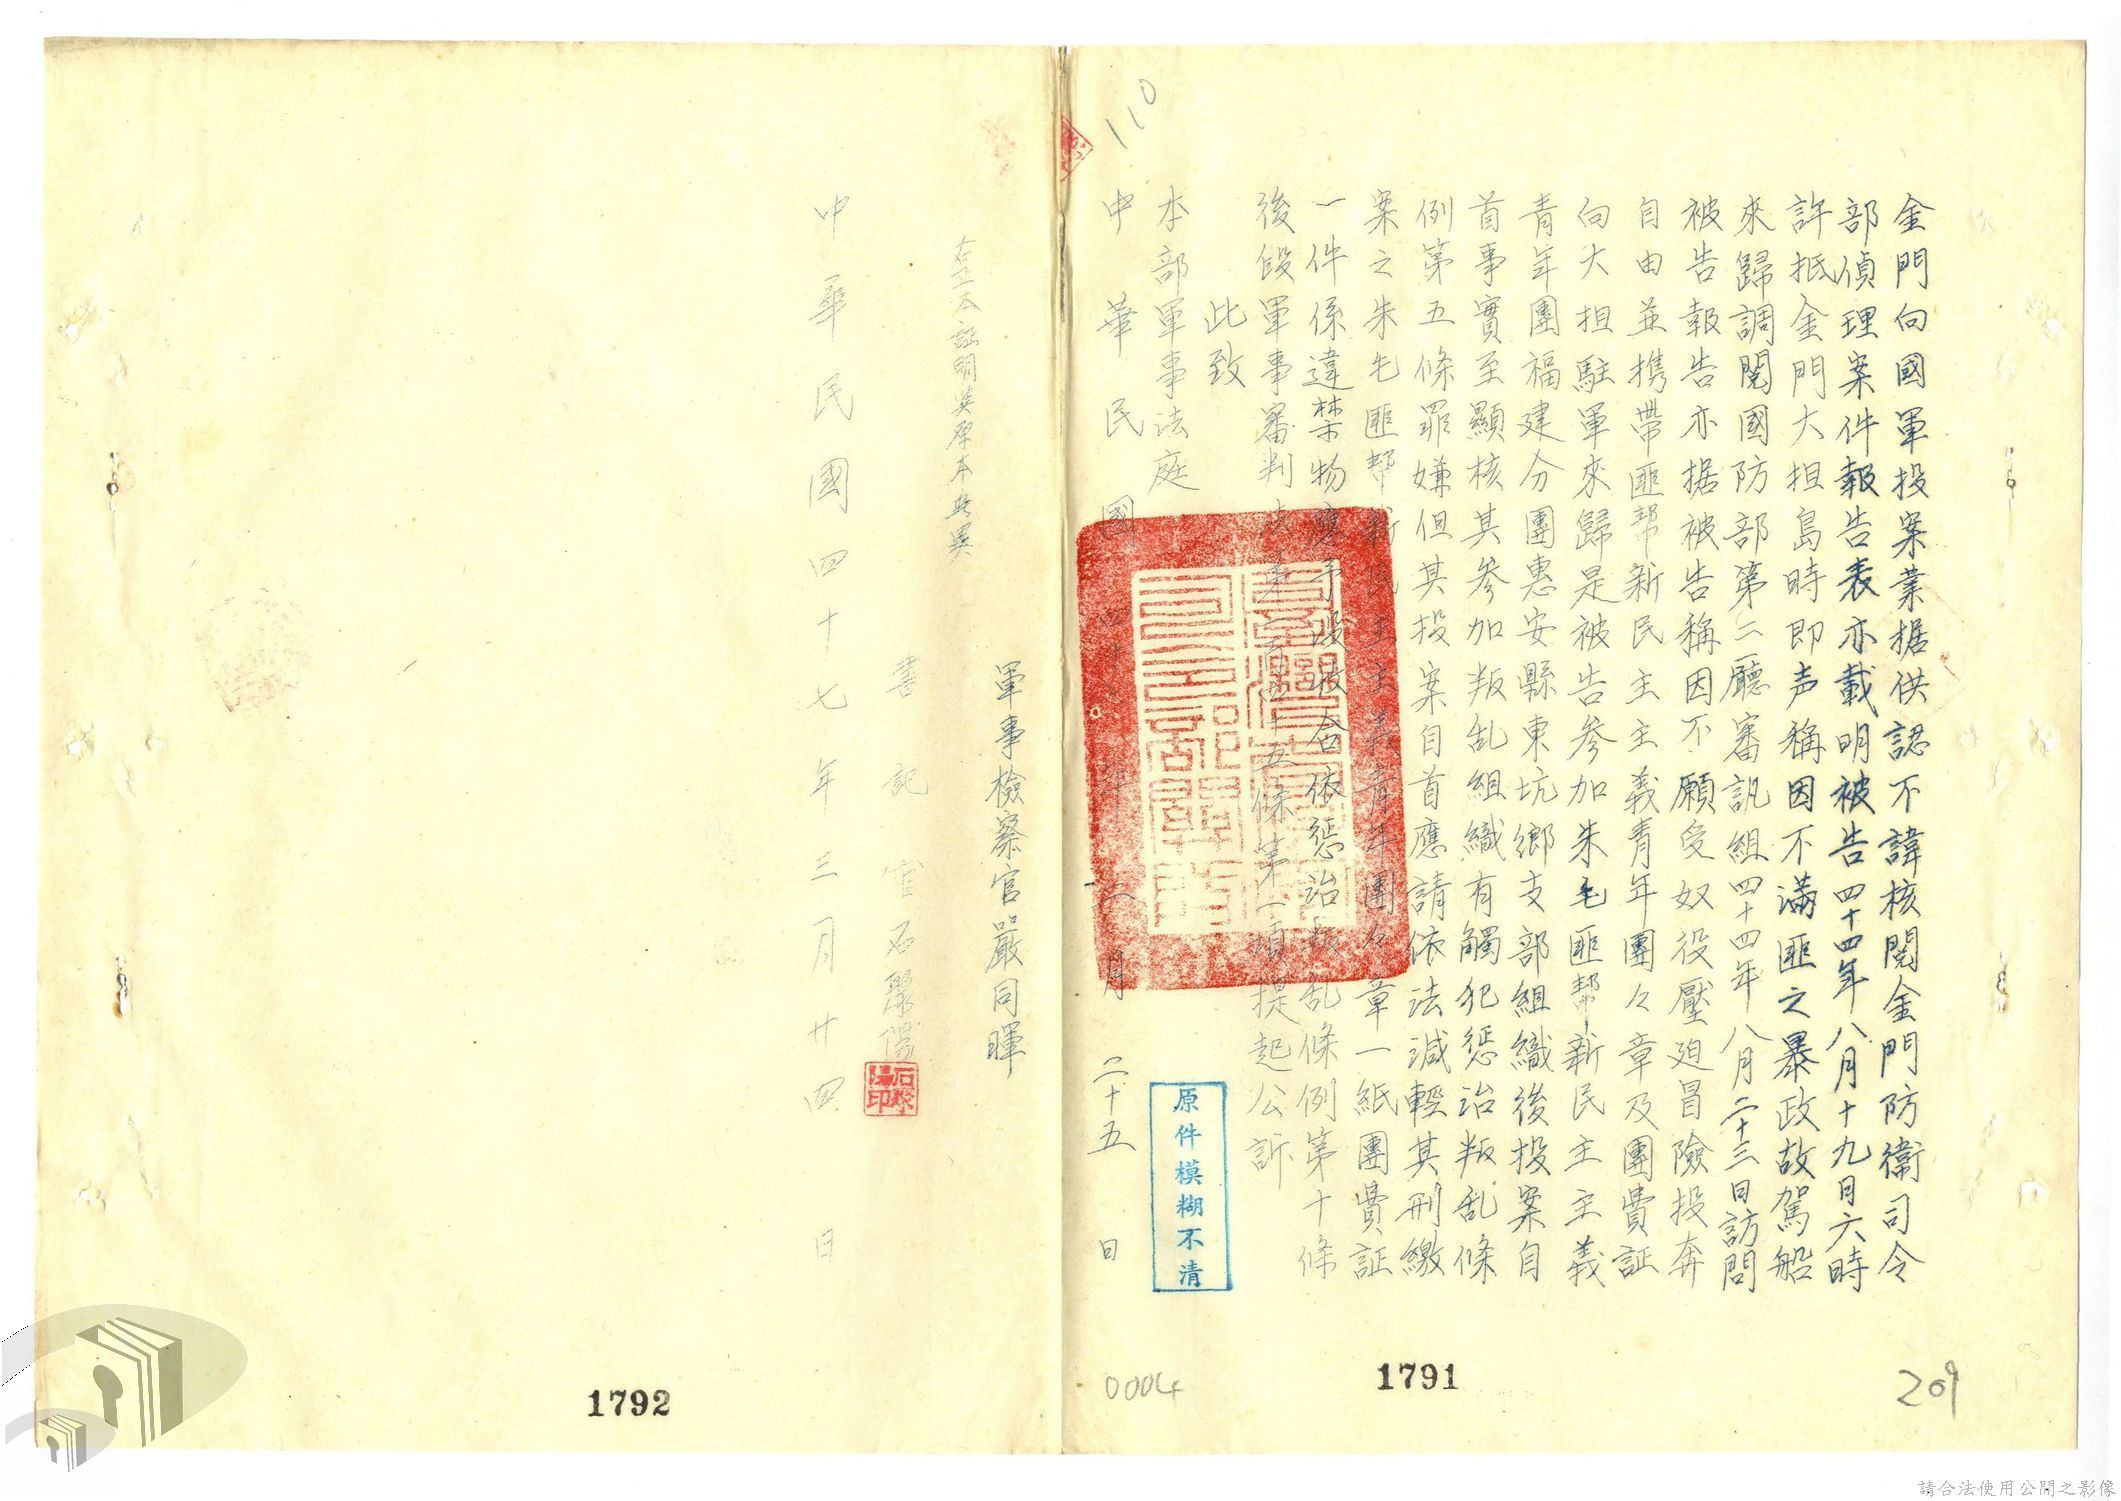 金門向國軍投案業据供認不諱核閱金門防衛司令
部偵理案件報告表亦載明被告四十四年八月十九月六時
許抵金門大担島時即声稱因不滿匪之暴政故駕船
來歸調閱國防部第二廳審訊組四十四年八月二十三日訪問
被告報告亦据被告稱因不願受奴役壓廹冒險投奔
自由並携帶匪幫新民主主義青年團々章及團費証
向大担駐軍來歸是被告參加朱毛匪幫新民主主義
青年團福建分團惠安縣東坑鄉支部組織後投案自
首事實至顯核其參加叛乱組織有觸犯惩治叛乱條
例第五條罪嫌但其投案自首應請依法減輕其刑繳
案之朱毛匪幫新民主主義青年團々章一紙團費証
一件係違禁物應予沒收合依惩治叛乱條例第十條
後段軍事審判法第一百四十五條第一項提起公訴
此致
本部軍事法庭
中華民國四十年三月二十五日
軍事檢察官嚴同暉
右正本証明與原本無異
書記官石聚陽
石聚陽印
中華民國四十七年三月廿四日
原件模糊不清
110
0004
1791
209
1792
請合法使用公開之影像